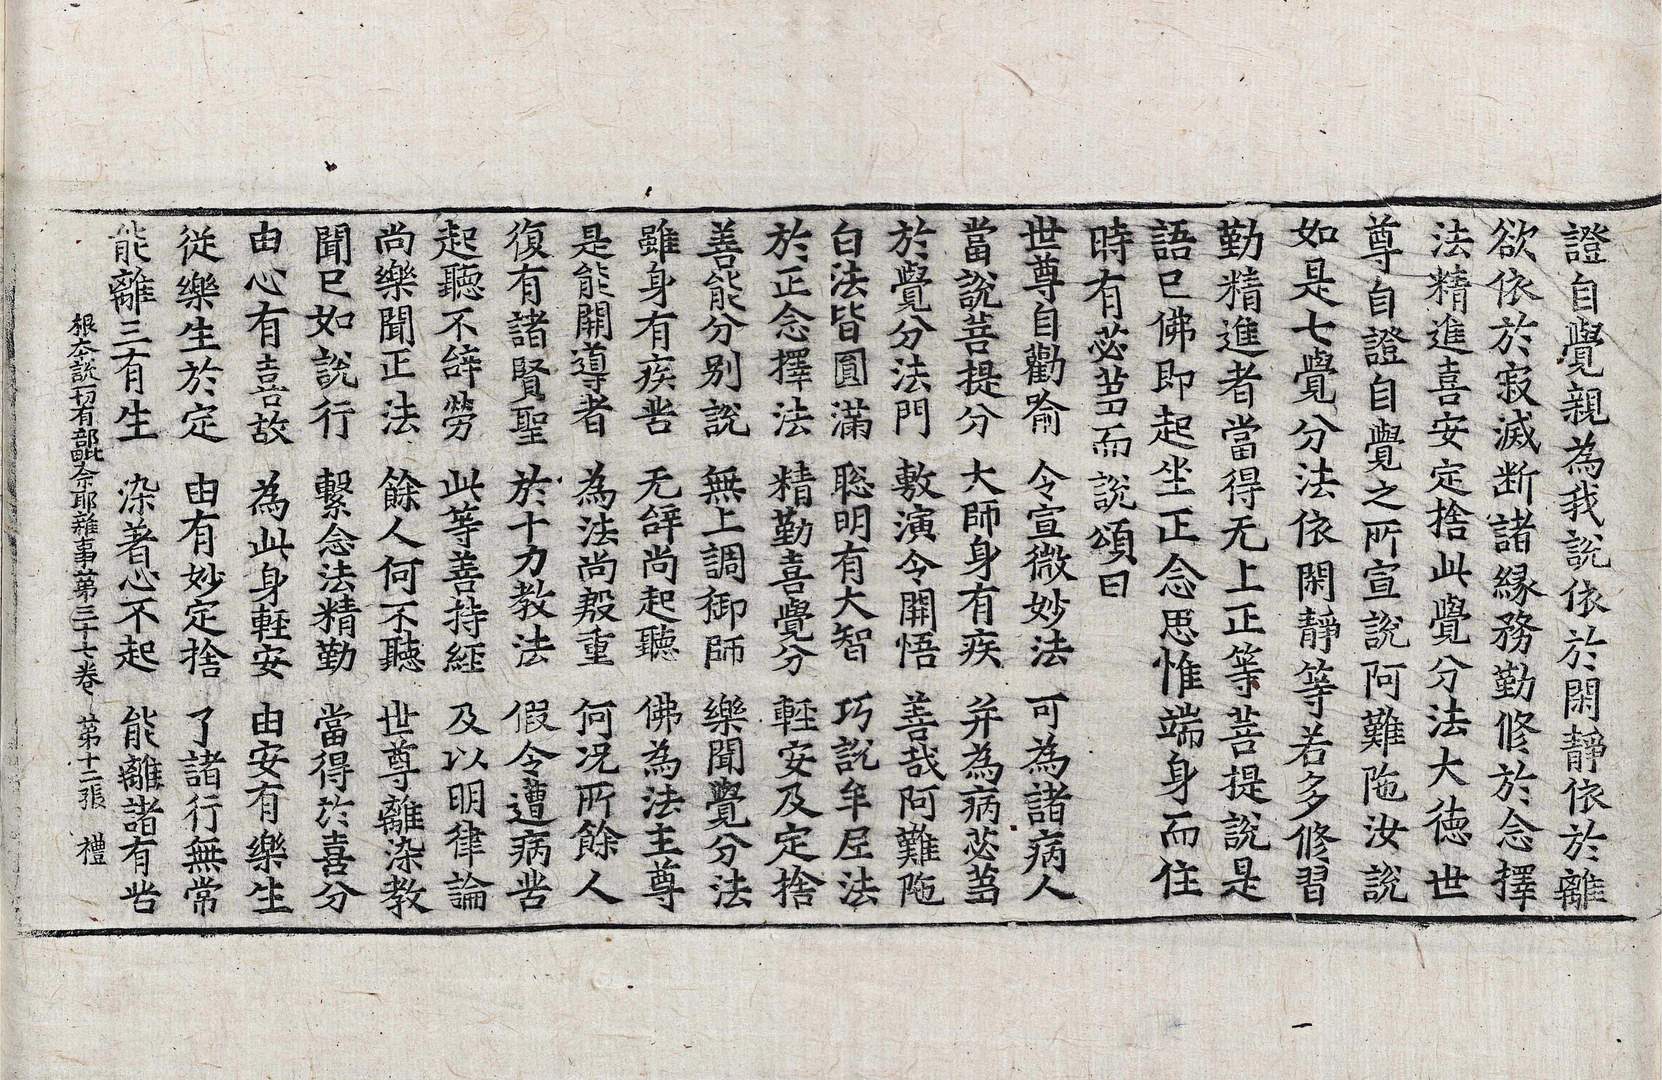 證自覺親為我說依於閑靜依於離
欲依於寂滅断諸緣務勤修於念擇
法精進喜安定捨此覺分法大德世
尊自證自覺之所宣說阿難陁汝說
如是七覺分法依閑靜等若多修習
勤精進者當得无上正等菩提說是
語已佛即起坐正念思惟端身而住
時有苾芻而說頌曰
世尊自勸喻　令宣微妙法　可為諸病人
當說菩提分　大師身有疾　并為病苾芻
於覺分法門　敷演令開悟　善哉阿難陁
白法皆圓滿　聡明有大智　巧說牟尼法
於正念擇法　精勤喜覺分　輕安及定捨
善能分別說　無上調御師　樂聞覺分法
雖身有疾苦　无辞尚起聽　佛為法主尊
是能開導者　為法尚殷重　何況所餘人
復有諸賢聖　於十力教法　假令遭病苦
起聽不辞勞　此等善持経　及以明律論
尚樂聞正法　餘人何不聽　世尊離染教
聞已如說行　繫念法精勤　當得於喜分
由心有喜故　為此身輕安　由安有樂生
從樂生於定　由有妙定捨　了諸行無常
能離三有生　染著心不起　能離諸有苦
根本說一切有部毗奈耶雜事第三十七卷　第十二張　禮